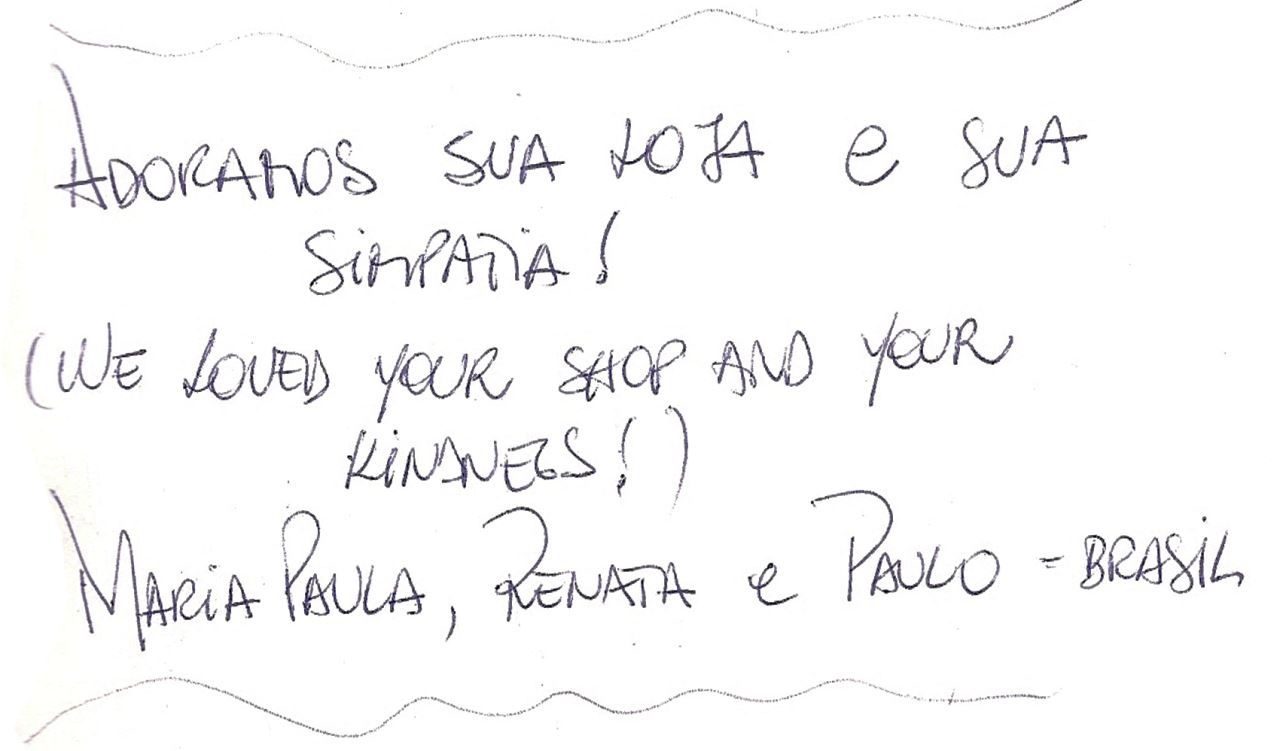 ADORAMOS SUA LOJA e SUA
SiMPATiA!
(WE LOVED YOUR SHOP AND YOUR
KiNDNESS!)
MARiA PAULA, RENATA e PAULO - BRASiL